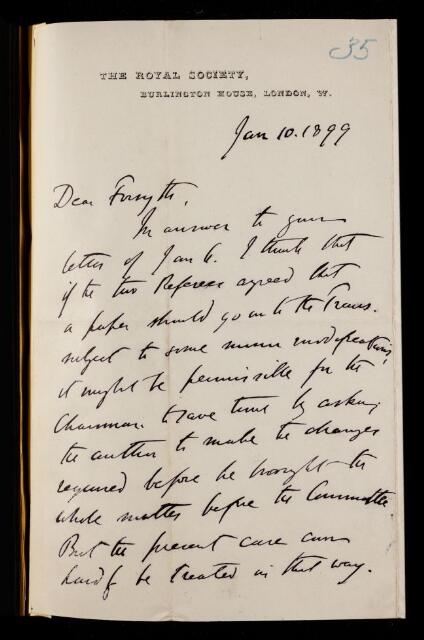 35
THE ROYAL SOCIETY,
BURLINGTON HOUSE, LONDON, W.
Jan 10. 1899
Dear Forsyth,
In answer to your
letter of Jan 6. I think that
if the two Referees agreed that
a paper should go into the Trans.
subject to some minor modifications,
it might be permissible for the
Chairman to save time by asking
the author to make the changes
required before he brought the
whole matter before the Committee.
But the present case can
hardly be treated in that way.